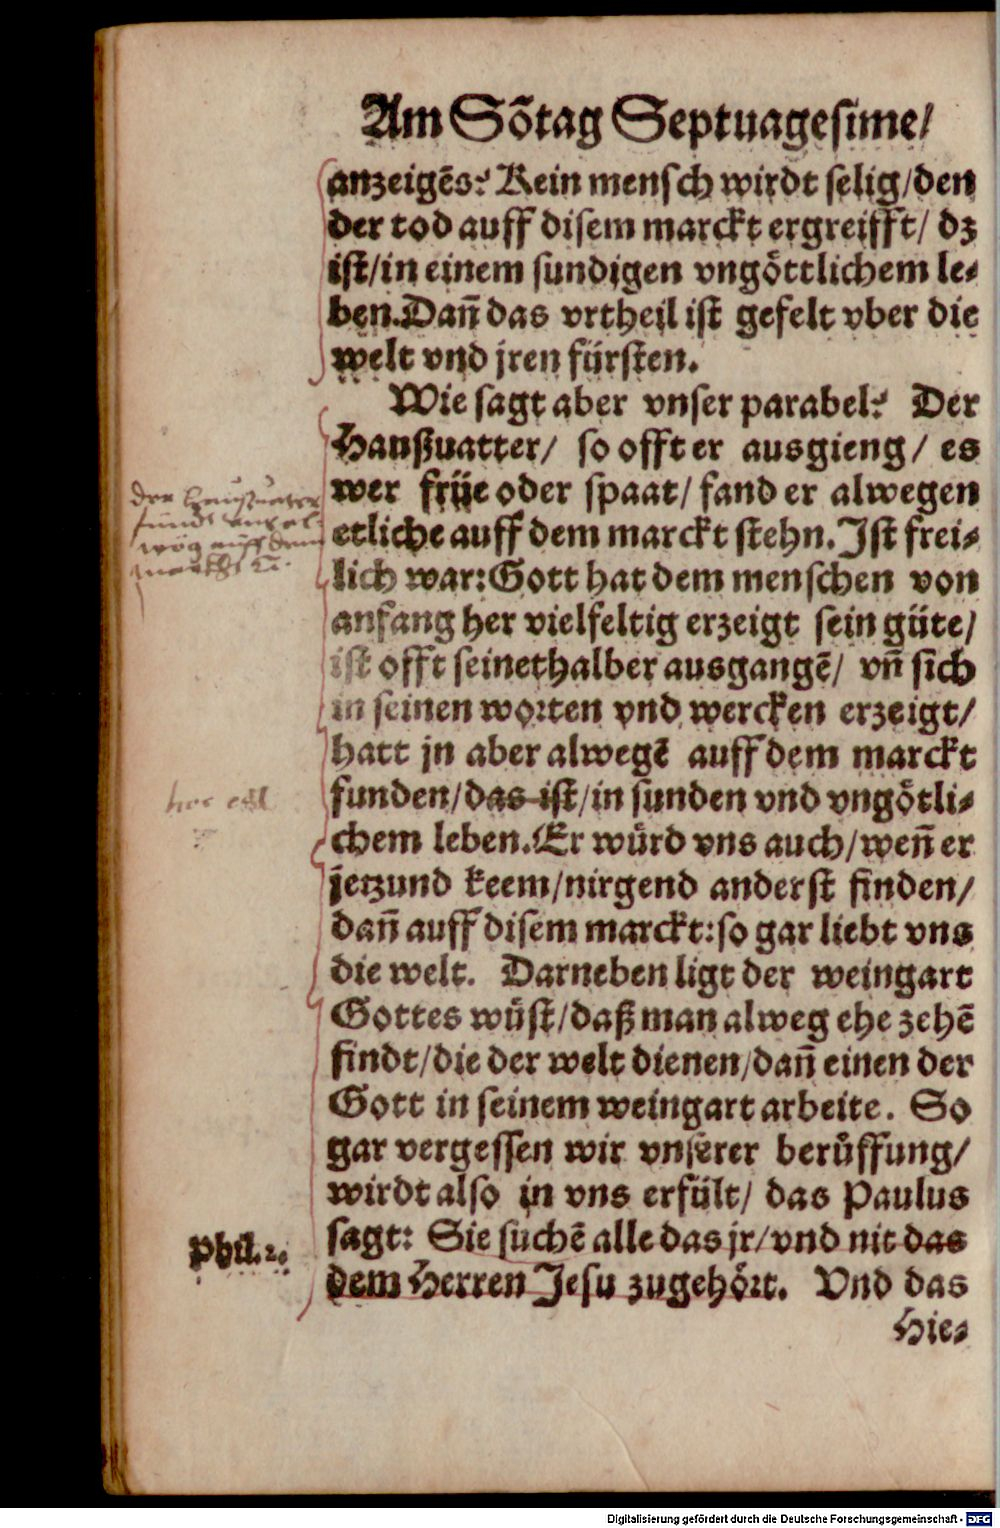 Am Sõtag Septuagesime/
anzeigẽs? Kein mensch wirdt selig/den
der tod auff disem marckt ergreifft/ dz
ist/in einem sundigen vngöttlichem le⸗
ben.Dañ das vrtheil ist gefelt vber die
welt vnd jren fürsten.
Wie sagt aber vnser parabel? Der
Haußuatter/ so offt er ausgieng/ es
wer früe oder spaat/ fand er alwegen
etliche auff dem marckt stehn. Ist frei⸗
lich war: Gott hat dem menschen von
anfang her vielfeltig erzeigt sein güte/
ist offt seinethalber ausgangẽ/ vñ sich
in seinen worten vnd wercken erzeigt/
hatt jn aber alwegẽ auff dem marckt
funden/das ist/in sunden vnd vngötli⸗
chem leben. Er würd vns auch/weñ er
jetzund keem/nirgend anderst finden/
dañ auff disem marckt: so gar liebt vns
die welt. Darneben ligt der weingart
Gottes wüst/daß man alweg ehe zehẽ
findt/die der welt dienen/dañ einen der
Gott in seinem weingart arbeite. So
gar vergessen wir vnserer berůffung/
wirdt also in vns erfült/ das Paulus
sagt: Sie suchẽ alle das jr/vnd nit das
dem Herren Jesu zugehört. Vnd das
Hie⸗
der Haußuater
auff dem
hoc est
Phil.2.
Digitalisierung gefördert durch die Deutsche Forschungsgemeinschaft - DFG